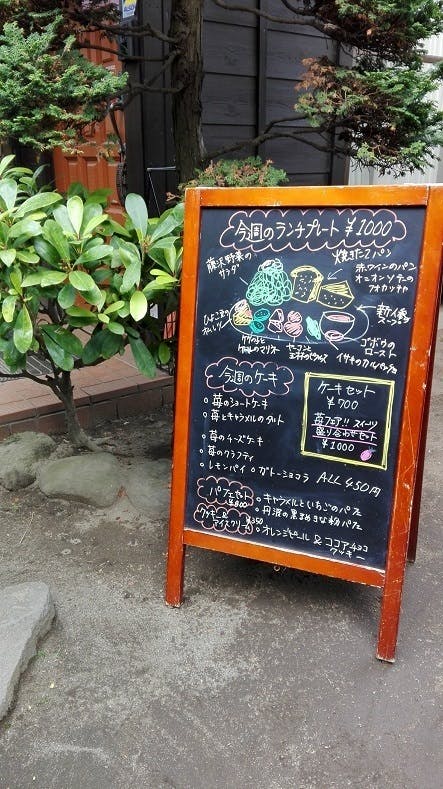 今週のランチプレート ¥1000
藤沢野菜の
サラダ
焼きたてパン
赤ワインのパン
オニオンソテーの
フォカッチャ
新人参
スープ
ひよこ豆の
ゴボウの
ロースト
今週のケーキ
苺のショートケーキ
苺とキャラメルのタルト
苺のチーズケーキ
苺のクラフティ
レモンパイ ガトーショコラ ALL 450円
ケーキセット
¥700
苺フェア!! スイーツ
盛り合わせセット
¥1000
パフェセット
¥800
キャラメルといちごのパフェ
丹波の黒まめきな粉パフェ
クッキー&
アイスクリーム
¥350
オレンジピール & ココアチョコ
クッキー